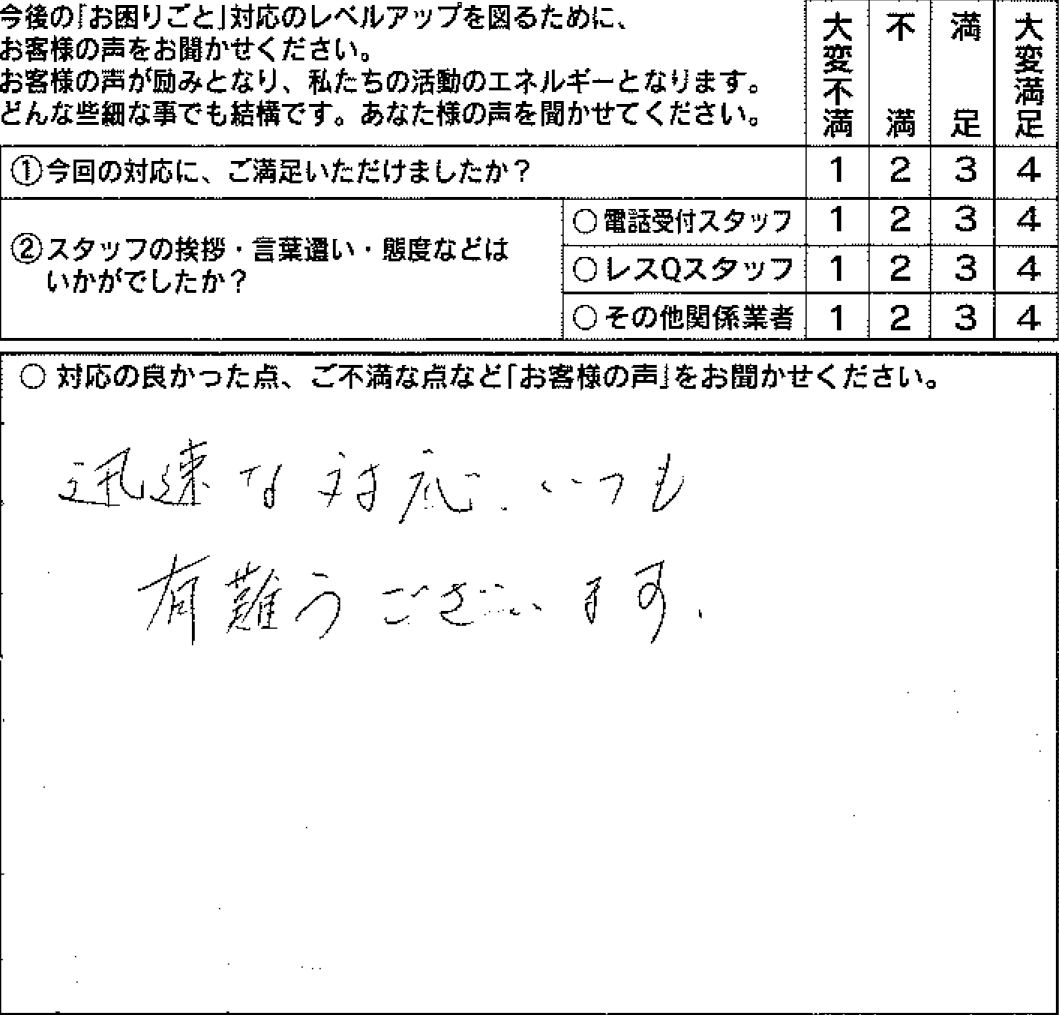 今後の「お困りごと」対応のレベルアップを図るために、
お客様の声をお聞かせください。
お客様の声が励みとなり、私たちの活動のエネルギーとなります。
どんな些細な事でも結構です。あなた様の声を聞かせてください。
大変不満 不満 満足 大変満足
①今回の対応に、ご満足いただけましたか？ 1 2 3 4
②スタッフの挨拶・言葉遣い・態度などは
いかがでしたか？
○電話受付スタッフ 1 2 3 4
○レスQスタッフ 1 2 3 4
○その他関係業者 1 2 3 4
○ 対応の良かった点、ご不満な点など「お客様の声」をお聞かせください。
迅速な対応、いつも
有難うございます。